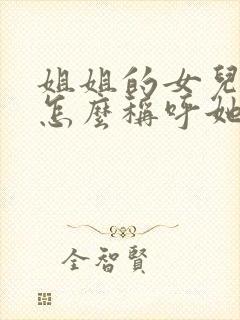 姐姐的女兒
怎麼稱呼她
全智賢